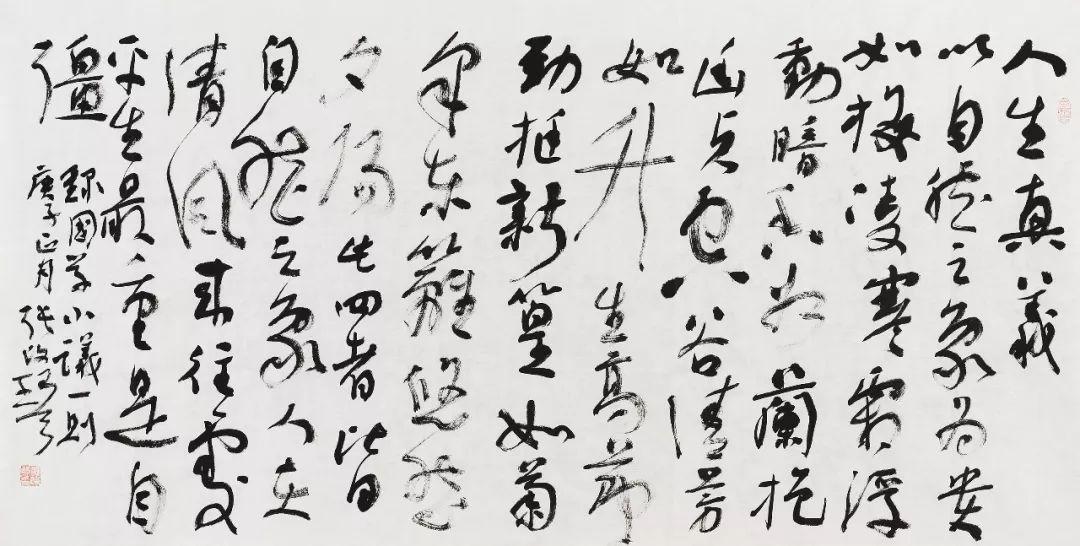 人生真義
以自然之象為貴
如梅凌寒霜浮
動暗香如蘭抱
幽貞空谷清芳
如竹生高節
勁挺新篁如菊
采東籬悠然
夕陽此四者皆
自然之象人在
清風來往處
平生最重是自
彊
錄國學小議一則
庚子正月 張改琴